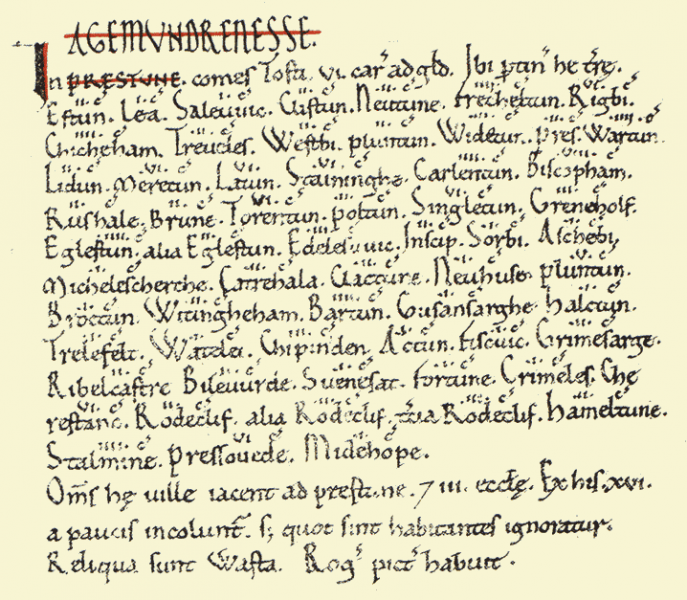 AGEMVNDRENESSE.
In PRESTUNE. comes Tosti. vi. car̃ ad gld̃. Ibi ꝑtiñ he tr̃ę.
Estun. Lea. Saleuuic. Cliftun. Neutune. Frecheltun. Rigbi.
Chicheham. Treueles. Westbi. Pluntun. Widetun. Pres. Wartun.
Lidun. Meretun. Latun. Staininghe. Carlentun. Biscopham.
Rushale. Brune. Torentun. Poltun. Singletun. Greneholf.
Eglestun. alia Eglestun. Edelesuuic. Inscip. Sorbi. Aschebi.
Michelescherche. Catrehala. Clactune. Neuhuse. Pluntun.
Broctun. Witingheham. Bartun. Gusansarghe. Halctun.
Trelefelt. Watelei. Chipinden. Actun. Fiscuic. Grimesarge.
Ribelcastre. Bileuurde. Suenesat. Fortune. Crimeles. Che
restanc. Rodeclif. alia Rodeclif. t̃cia Rodeclif. Hameltune.
Stalmine. Pressouede. Midehope.
Om̃s hę uille iacent ad prestune. ⁊ iii. ecclę. Ex his .xvi.
a paucis incolunt̃. s; quot sint habitantes ignoratur.
Reliqua sunt Wasta. Rog̃ pict̃ habuit.